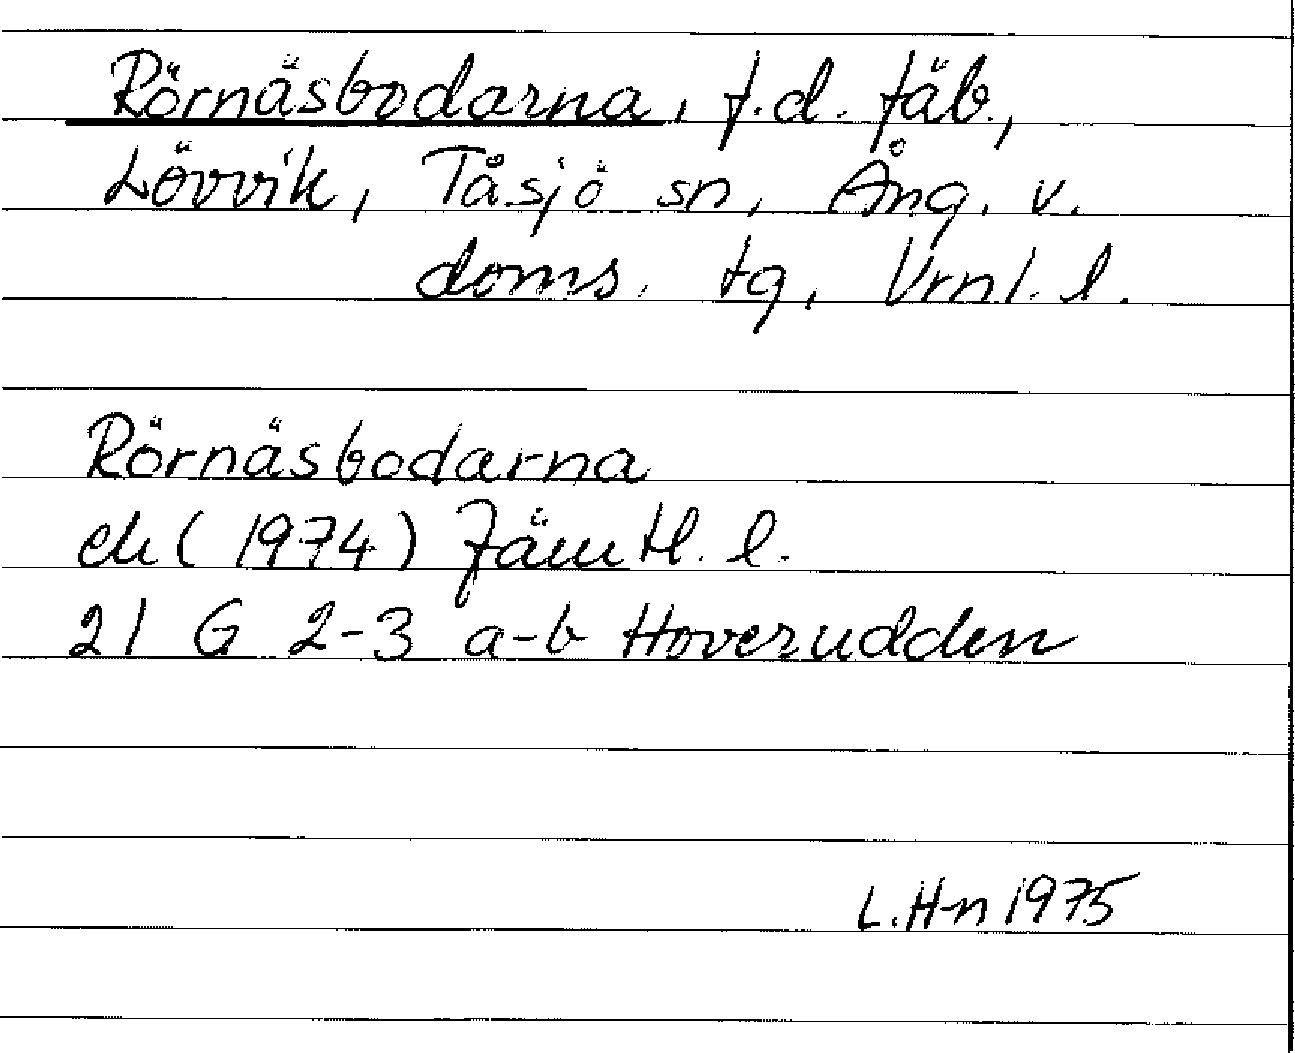 Rörnäsbodarna, f.d. fäb.,
Lövvik, Tåsjö sn, Ång. v.
doms. tg, Vrnl. l.
Rörnäsbodarna
ek (1974) Jämtl. l.
21 G 2-3 a-b Hoverudden
L. H-n 1975